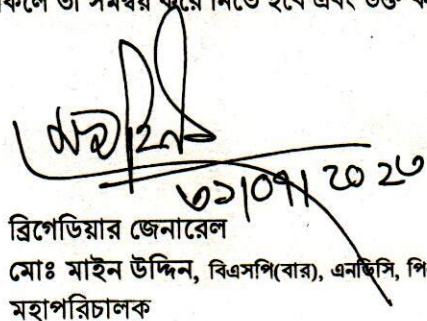 তা সমন্বয় করে নিতে হবে এবং উক্ত
৩১/০৭/২০২৩
ব্রিগেডিয়ার জেনারেল
মোঃ মাইন উদ্দিন, বিএসপি(বার), এনডিসি, পি
মহাপরিচালক